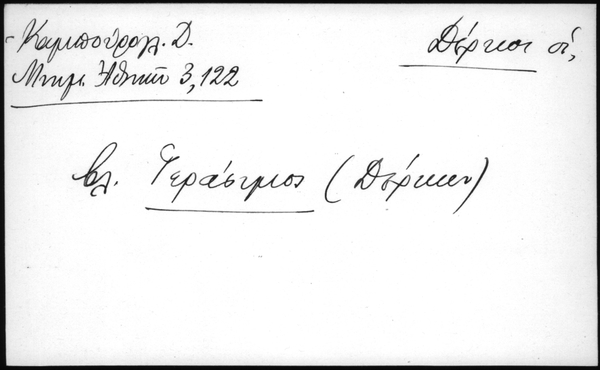 Καμπούρογλ. Δ.
Μνημ. Ἀθηνῶν 3,122
Δέρκοι οἱ,
βλ. Γεράσιμος (Δέρκων)